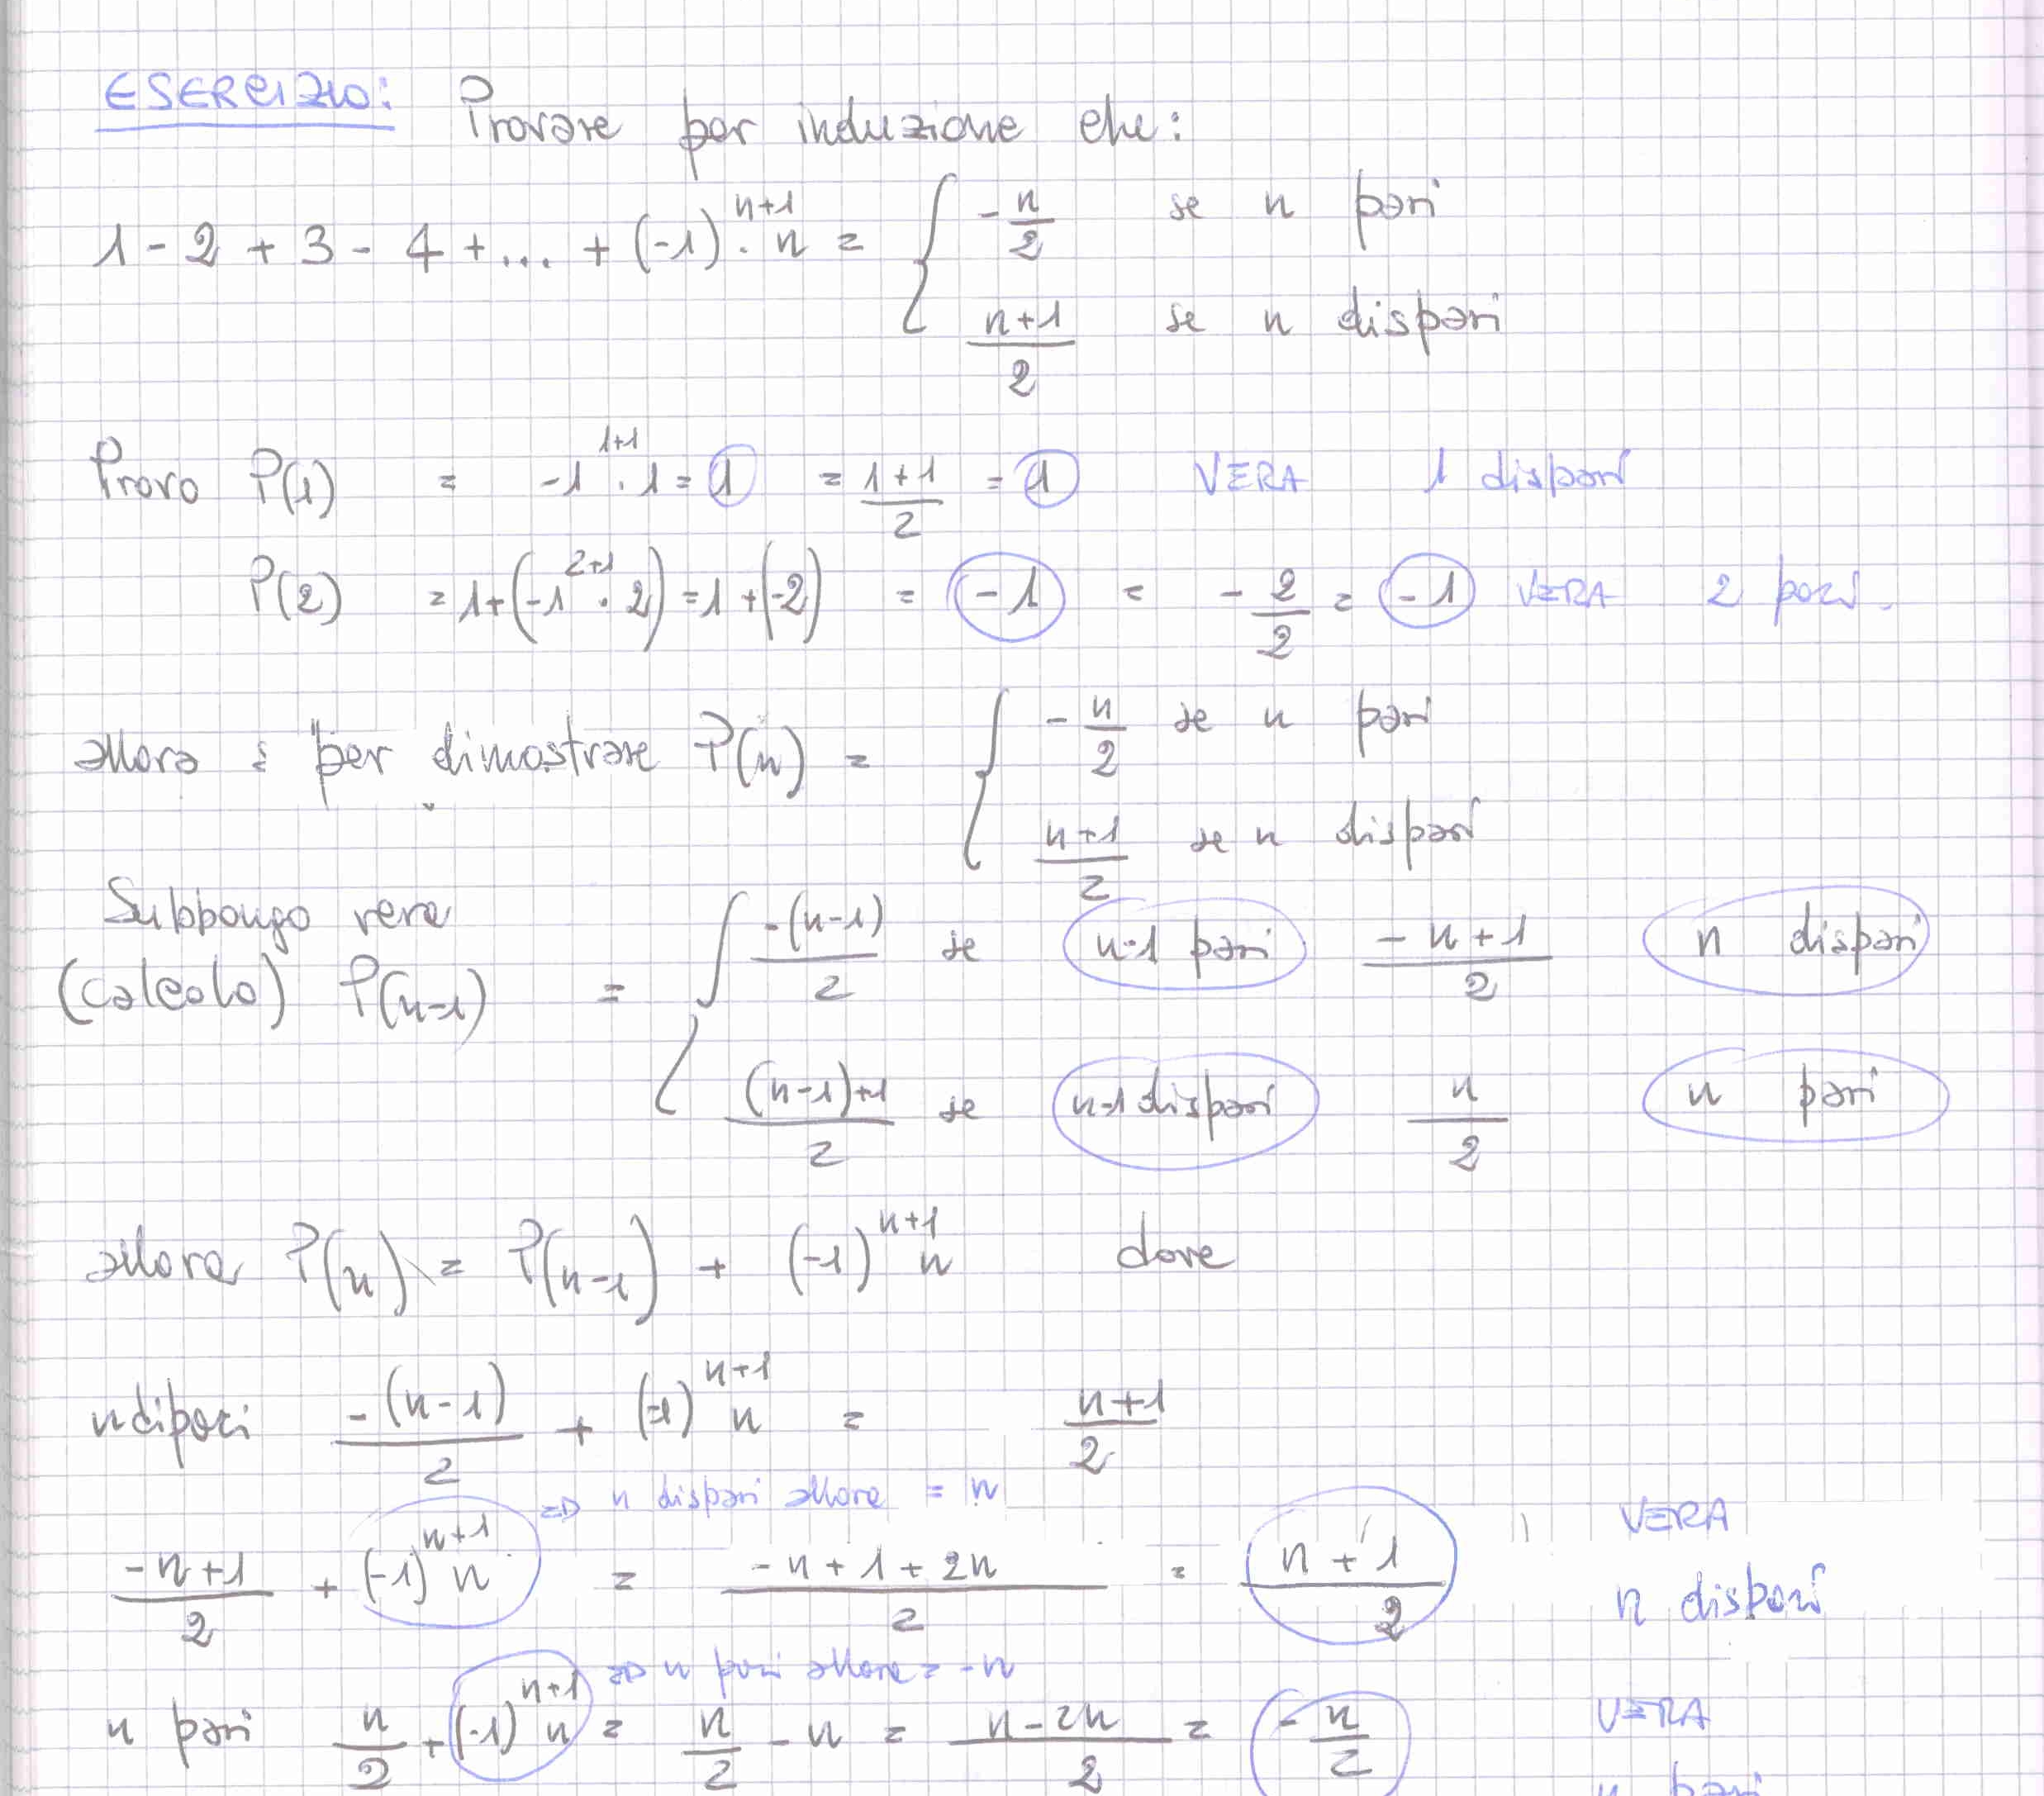 ESERCIZIO: Provare per induzione che:
1 - 2 + 3 - 4 + ... + (-1)^{n+1} · n = { -n/2 se n pari
(n+1)/2 se n dispari
Provo P(1) = -1^{1+1} · 1 = 1 = (1+1)/2 = 1 VERA 1 dispari
P(2) = 1 + (-1^{2+1} · 2) = 1 + (-2) = -1 = -2/2 = -1 VERA 2 pari.
allora : per dimostrare P(n) = { -n/2 se n pari
(n+1)/2 se n dispari
Suppongo vera
(calcolo) P(n-1) = { -(n-1)/2 se n-1 pari (-n+1)/2 n dispari
((n-1)+1)/2 se n-1 dispari n/2 n pari
allora P(n) = P(n-1) + (-1)^{n+1} n dove
n dipari -(n-1)/2 + (-1)^{n+1} n = (n+1)/2
=> n dispari allora = n
(-n+1)/2 + (-1)^{n+1} n = (-n+1+2n)/2 = (n+1)/2 VERA
n dispari
=> n pari allora = -n
n pari n/2 + (-1)^{n+1} n = n/2 - n = (n-2n)/2 = -n/2 VERA
n pari